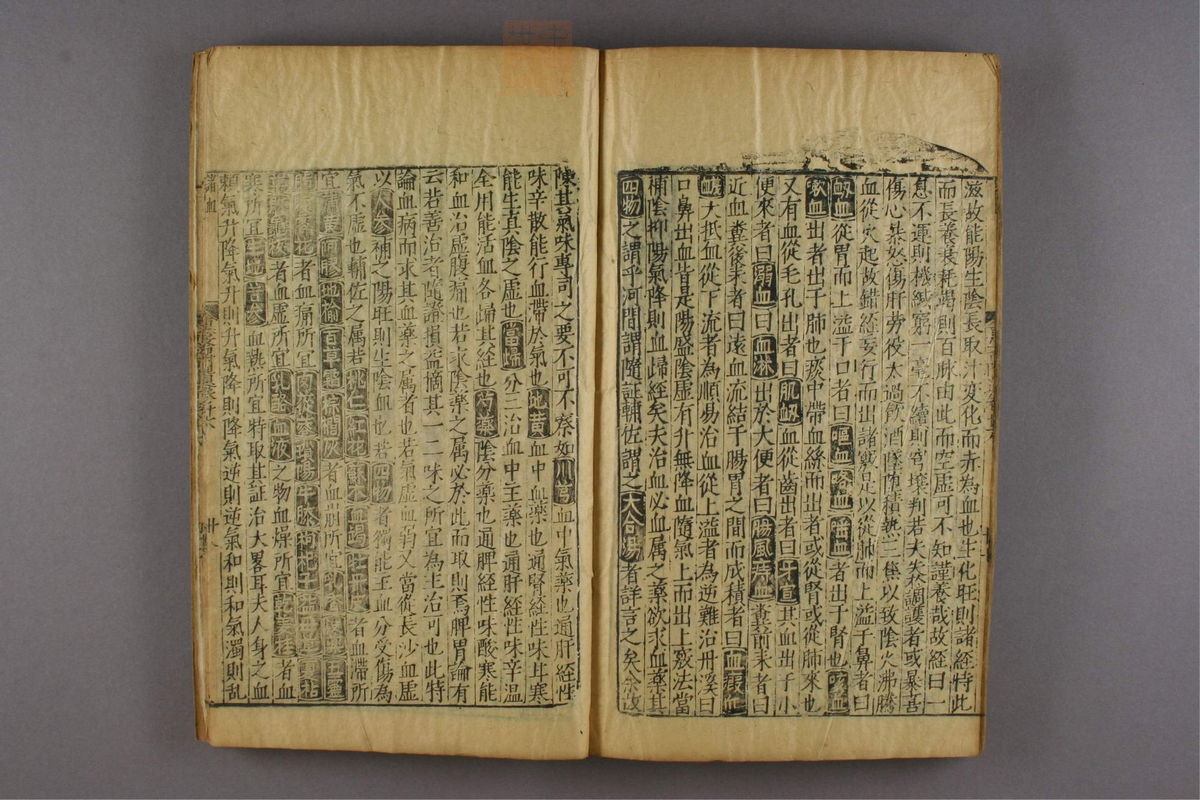 滋故能陽生陰長取汁變化而赤為血也生化旺則諸經恃此
而長養衰耗竭則百脉由此而空虛可不知謹養哉故經曰一
息不運則機緘窮一毫不續則穹壤判若夫失調護者或暴喜
傷心暴怒傷肝勞役太過飲酒墜墮積熱三焦以致陰火沸騰
血從火起故錯經妄行而出諸竅是以從肺而上溢于鼻者曰
衂血從胃而上溢于口者曰嘔血咯血唾血者出于腎也咳血
嗽血出者出于肺也痰中帶血絲而出者或從腎或從肺來也
又有血從毛孔出者曰肌衂血從齒出者曰牙宣其血出于小
便來者曰溺血曰血淋出於大便者曰腸風痔血糞前來者曰
近血糞後來者曰遠血流結于腸胃之間而成積者曰血瘕血
大抵血從下流者為順易治血從上溢者為逆難治丹溪曰
口鼻出血皆是陽盛陰虛有升無降血隨氣上而出上竅法當
補陰抑陽氣降則血歸經矣夫治血必血属之藥欲求血藥其
四物之謂乎河間謂隨証輔佐謂之大合湯者詳言之矣余故
陳其氣味專司之要不可不察如川芎血中氣藥也通肝經性
味辛散能行血滯於氣也地黄血中血藥也通腎經性味甘寒
能生真陰之虛也當歸分三治血中主藥也通肝經性味辛温
全用能活血各歸其經也芍藥陰分藥也通脾經性味酸寒能
和血治虛腹痛也若求陰藥之属必於此而取則焉脾胃論有
云若善治者隨證損益摘其一二味之所宜為主治可也此特
論血病而求其血藥之属者也若氣虛血弱又當從長沙血虛
以人參補之陽旺則生陰血也若四物者獨能主血分受傷為
氣不虛也輔佐之属若桃仁紅花蘇木血竭牡丹皮者血滯所
宜蒲黄阿膠地榆百草霜棕榈灰者血崩所宜乳香沒藥五靈
脂凌霄花者血痛所宜肉蓯蓉瑣陽牛膝枸杞子益母草夏枯
草敗龜板者血虛所宜乳酪血液之物血燥所宜乾薑桂者血
寒所宜生地苦參血熱所宜特取其証治大畧耳夫人身之血
賴氣升降氣升則升氣降則降氣逆則逆氣和則和氣濁則亂
諸血
卄八